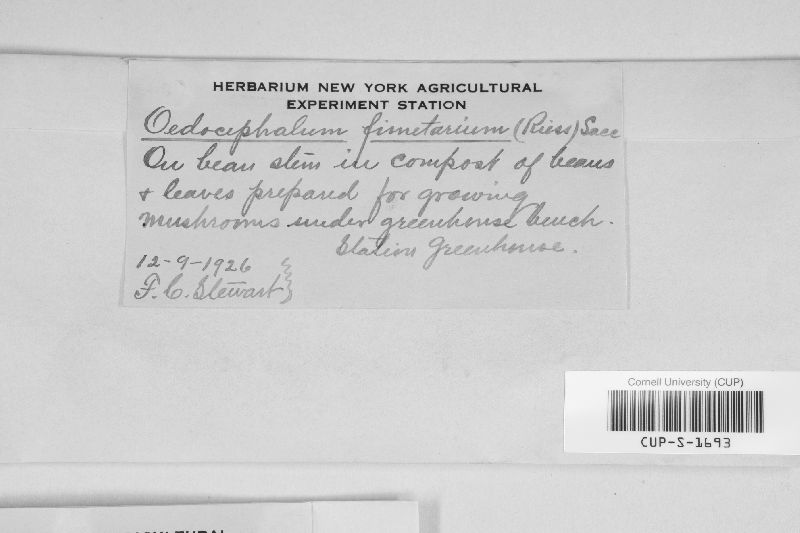 HERBARIUM NEW YORK AGRICULTURAL
EXPERIMENT STATION
Oedocephalum fimetarium (Riess) Sacc
On bean stem in compost of beans
& leaves prepared for growing
mushrooms under greenhouse bench.
Station Greenhouse.
12-9-1926
F. C. Stewart
Cornell University (CUP)
CUP-S-1693